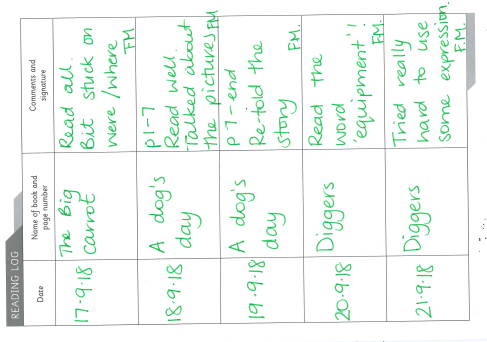 READING LOG
Date
Name of book and
page number
Comments and
signature
17.9.18
The Big
Carrot
Read all.
Bit stuck on
were/where
FM
18.9.18
A dog's
day
p1-7
Read well.
Talked about
the pictures FM
19.9.18
A dog's
day
p7-end
Re-told the
story
FM.
20.9.18
Diggers
Read the
word
'equipment'!
FM.
21.9.18
Diggers
Tried really
hard to use
some expression.
F.M.